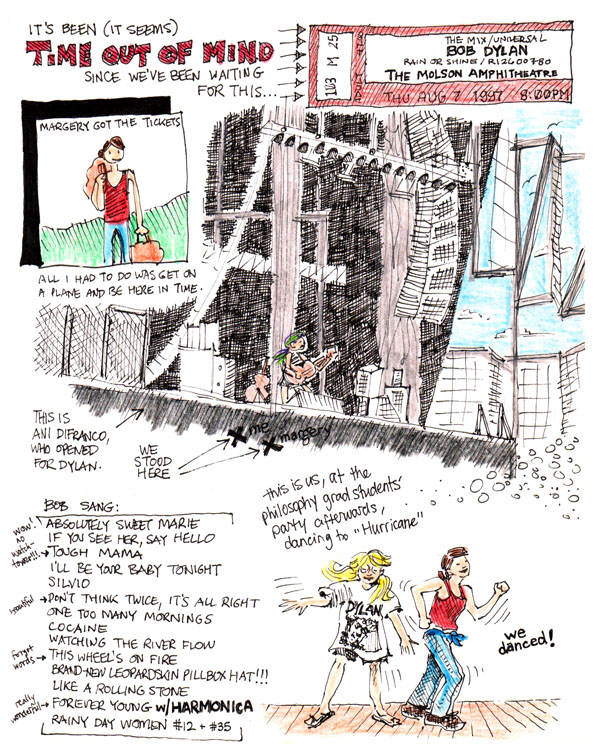 IT'S BEEN (IT SEEMS)
TIME OUT OF MIND
SINCE WE'VE BEEN WAITING
FOR THIS...
1W3 M 25
THE MIX/UNIVERSAL
BOB DYLAN
RAIN OR SHINE/R12600780
THE MOLSON AMPHITHEATRE
THU AUG 7 1997 8:00PM
MARGERY GOT THE TICKETS
ALL I HAD TO DO WAS GET ON
A PLANE AND BE HERE IN TIME.
THIS IS
ANI DIFRANCO,
WHO OPENED
FOR DYLAN.
WE
STOOD
HERE
me
margery
this is us, at the
philosophy grad students'
party afterwards,
dancing to "Hurricane"
BOB SANG:
ABSOLUTELY SWEET MARIE
IF YOU SEE HER, SAY HELLO
wow!
no
watch-
tower!!!
TOUGH MAMA
I'LL BE YOUR BABY TONIGHT
SILVIO
beautiful
DON'T THINK TWICE, IT'S ALL RIGHT
ONE TOO MANY MORNINGS
COCAINE
WATCHING THE RIVER FLOW
forgot
words
THIS WHEEL'S ON FIRE
BRAND-NEW LEOPARDSKIN PILLBOX HAT!!!
LIKE A ROLLING STONE
really
wonderful
FOREVER YOUNG w/HARMONICA
RAINY DAY WOMEN #12 + #35
DYLAN
we
danced!